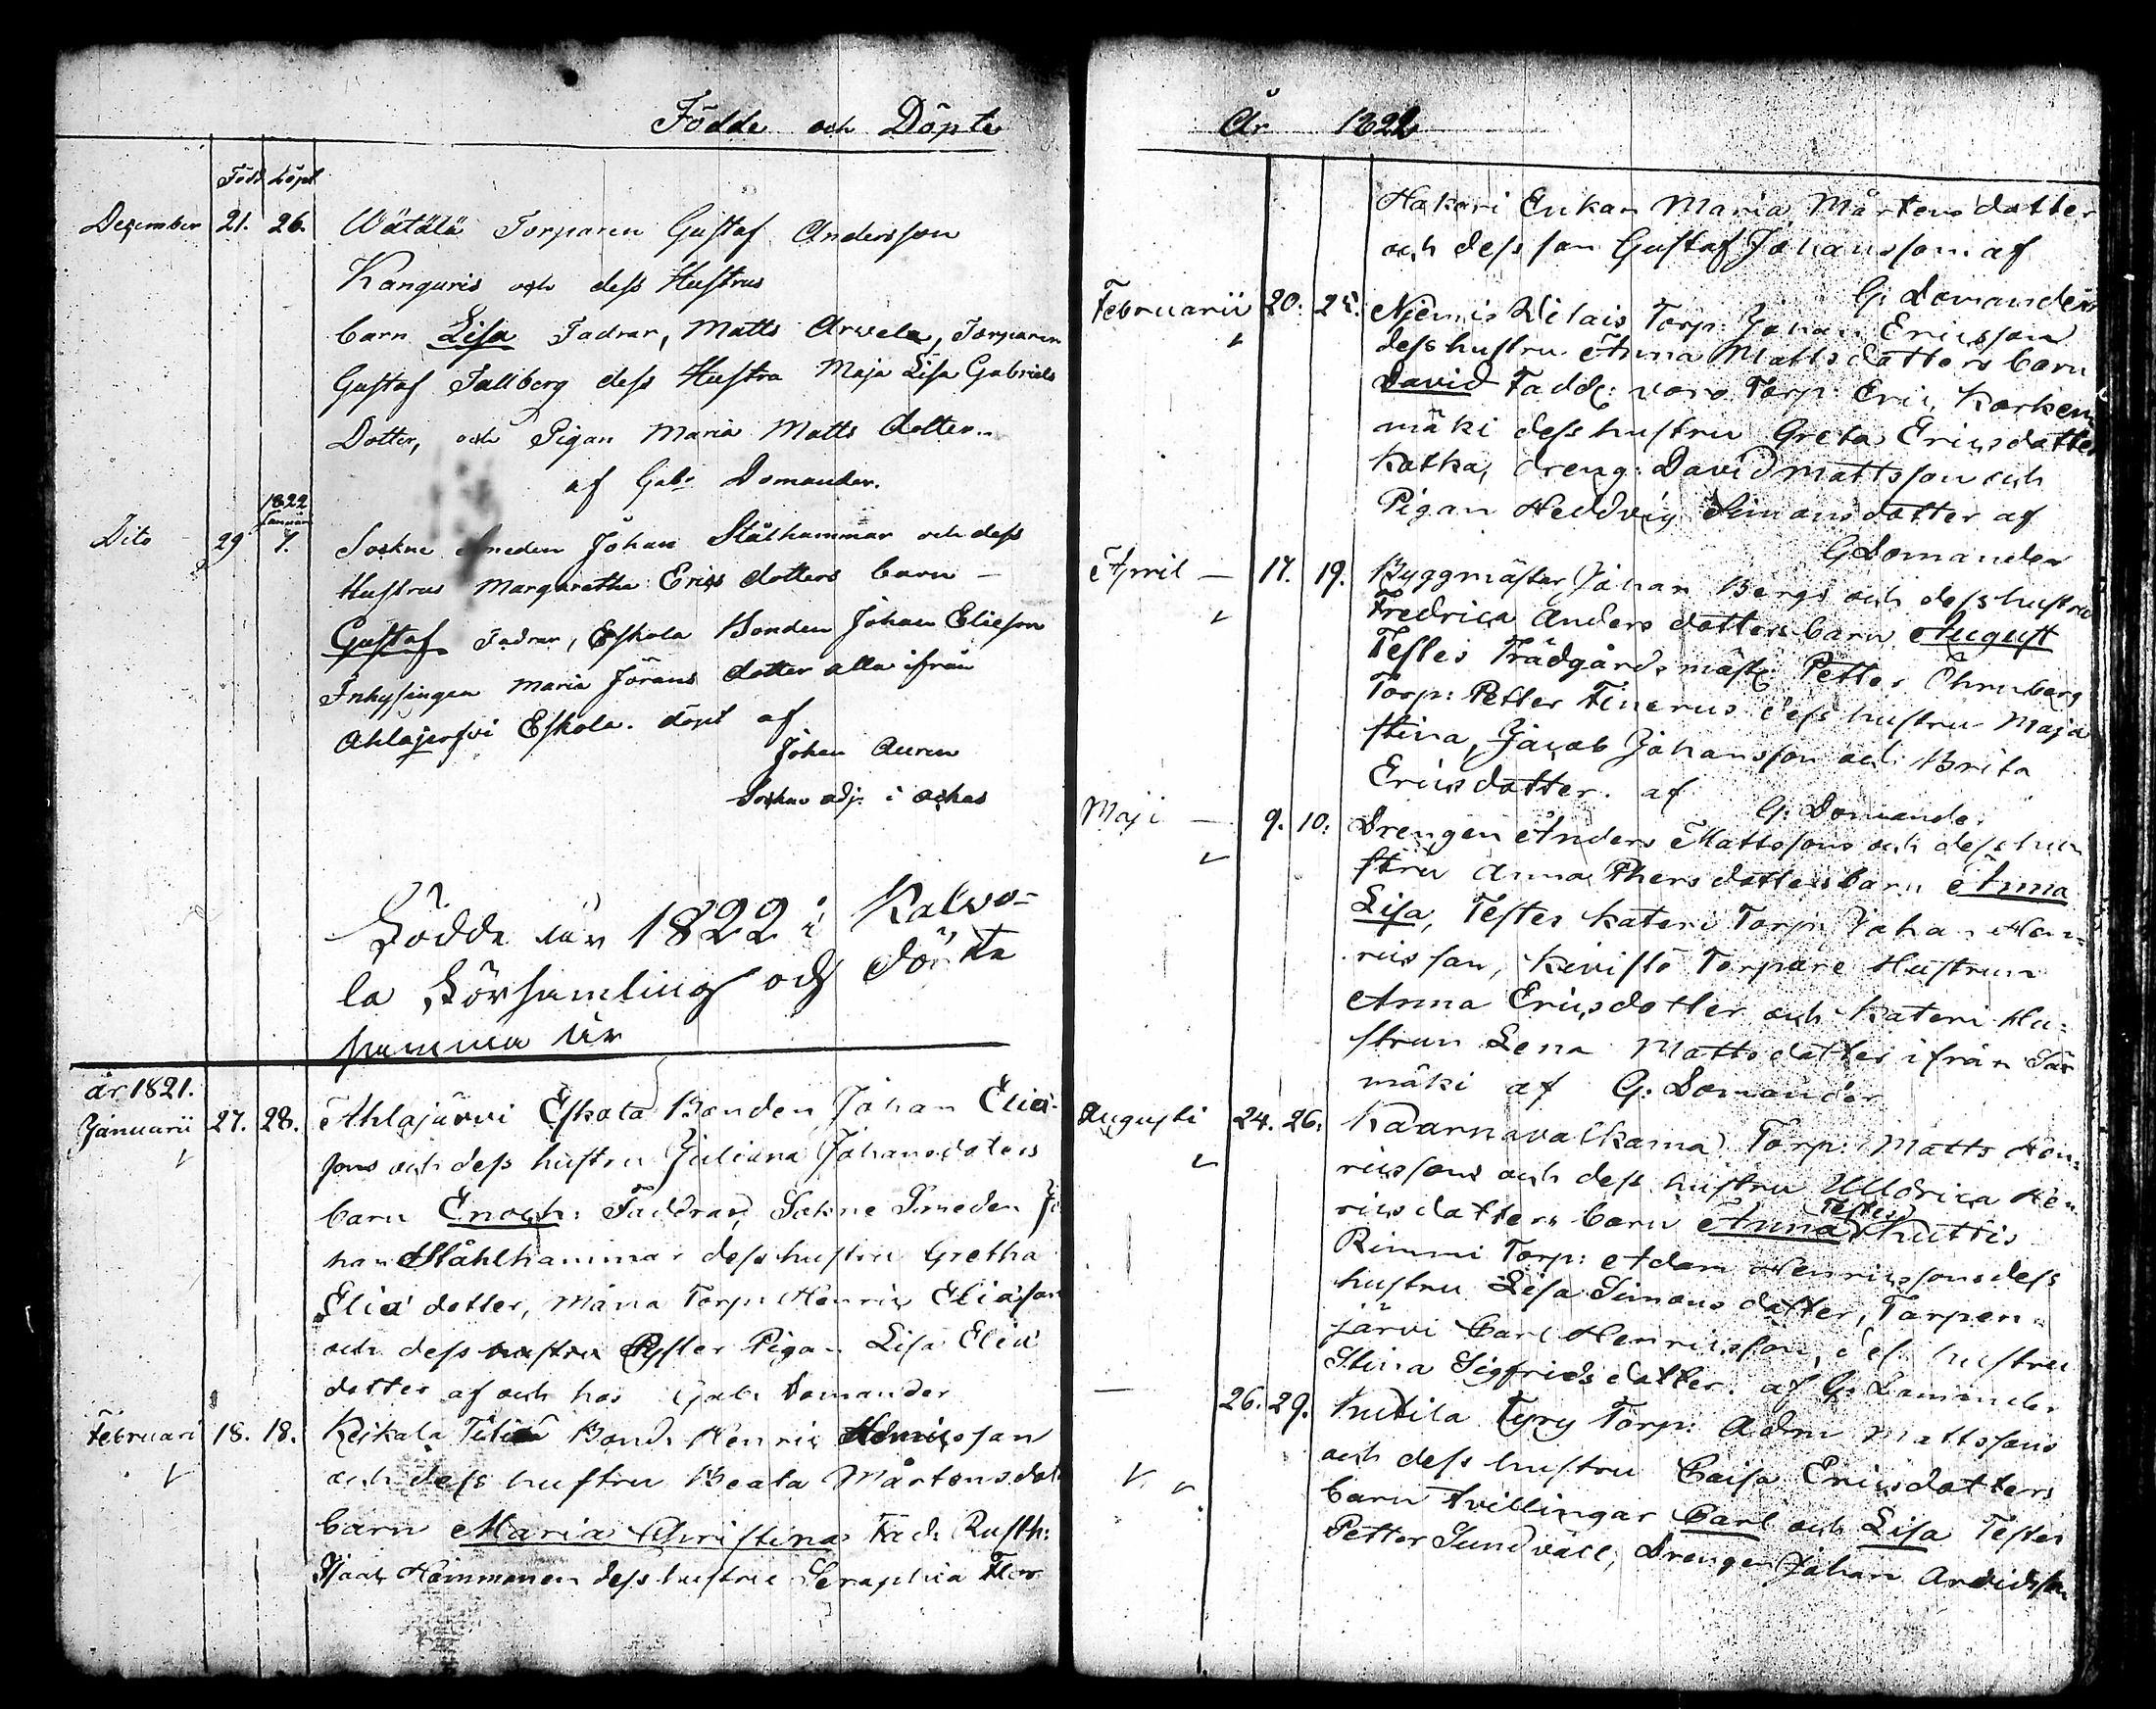 Födde och Döpte
Född Döpt
December 21. 26. Wätälä Torparen Gustaf Andersson
Kanguris och dess Hustrus
barn Lisa Fadrar, Matts Arvela, Torparen
Gustaf Tallberg dess Hustra Maja Lisa Gabriels
Dotter, och Pigan Maria Matts dotter
af Gab. Domander.
1822
Januari
Dito 29 7. Sockne Smeden Johan Stålhammar och dess
Hustrus Margaretha Erics dotters barn
Gustaf Fadrar, Eskola Bonden Johan Elieson
Inhysingen Maria Jörans dotter alla ifrån
Ahlajerfvi Eskola. döpt af
Johan Auren
Sockne adj. i
Födde år 1822 i Kalvo-
la Församling och döpta
samma år
år 1821.
Januarii 27. 28. Ahlajärvi Eskola Bonden Johan Elia-
sons och dess hustru Juliana Johansdoters
barn Enoch: Faddrar, Sokne Smeden Jo
han Ståhlhammar dess hustru Gretha
Elia dotter, Torp: Henric Eliason
och dess hustru Pigan Lisa Elia
dotter af och hos Gab: Domander
Februari 18. 18. Keikala Bond: Henric Henricsson
och dess hustru Beata Mårtensdot
barn Maria Christina Fad: Rusth:
Isaac Heimmonen dess hustru Seraphia Flor
År 1822
Hakari Enkan Maria Mårtens dotter
och dess son Gustaf Johansson af
G: Domander
Februarii 20. 25. Niemis Torp: Johan Ericsson
dess hustru Anna Mattsdotters barn
David Fadd: voro Torp: Eric Korken
mäki dess hustru Greta Ericsdotter
Katka, dreng: David Mattsson och
Pigan Heddvig Simonsdotter af
G Domander
April — 17. 19. Byggmästar Johan Bergs och dess hustru
Fredrica Anders dotters barn August
Testes Trädgårdsmäst: Petter Öhrnberg
Torp: Petter Finerus dess hustru Maja
Stina, Jacob Johansson och Brita
Ericsdotter. af G: Domander
Maji — 9. 10: Drengen Anders Mattssons och dess hu
stru Anna Phersdotters barn Anna
Lisa, Testes Kateri Torp: Johan Hen=
ricsson, Kivistö Torpare Hustrun
Anna Ericsdotter och Kateri Hu=
strun Lena Mattsdotter ifrån
mäki af G: Domander
Augusti 24. 26. Kaarnava (karna) Torp: Matts Hen=
ricssons och dess hustru Ulldrica Hen
ricsdotters barn Anna Testes Huttis
Rimmi Torp: Adam Henricssons dess
hustru Lisa Simons dotter, Tarpen=
järvi Carl Henricsson, des hustru
Stina Sigfridsdotter. af G: Domander
— 26. 29. Hutila Tyry Torp: Adm Mattssons
och dess hustru Caisa Ericsdotters
barn tvillingar Carl och Lisa Testes
Petter Sundvall, Drengen Johan Arvidsson